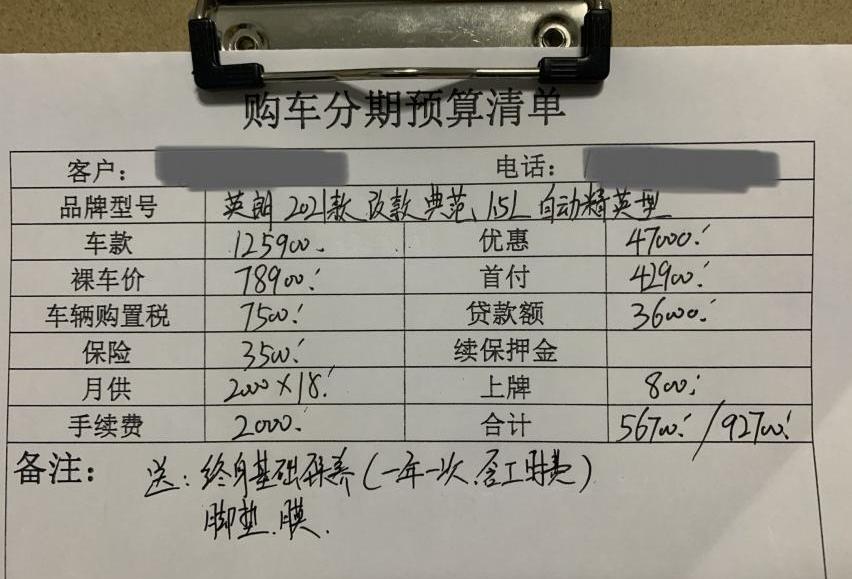 购车分期预算清单
客户： 电话：
品牌型号 英朗 2021款 改款典范、1.5L 自动精英型
车款 125900. 优惠 47000.
裸车价 78900. 首付 42900.
车辆购置税 7500. 贷款额 36000.
保险 3500. 续保押金
月供 2000×18. 上牌 800.
手续费 2000. 合计 56700./92700.
备注： 送：终身基础保养（一年一次.含工时费）
脚垫.膜.